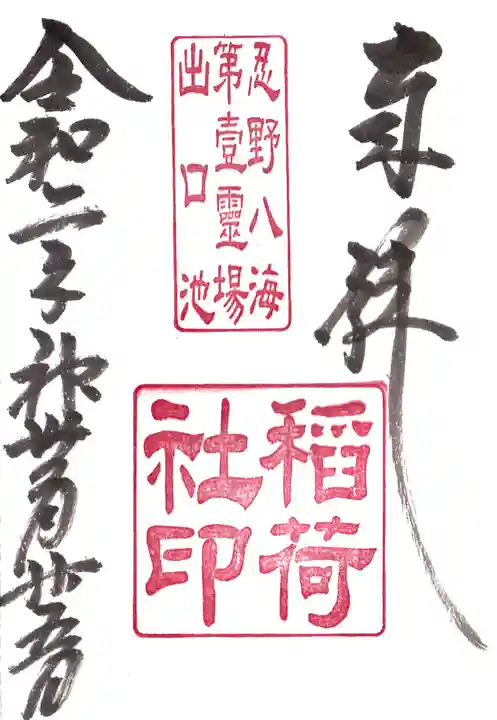 奉拝
忍野八海
第壹靈場
出口池
稲荷
社印
令和二子神無月廿五日